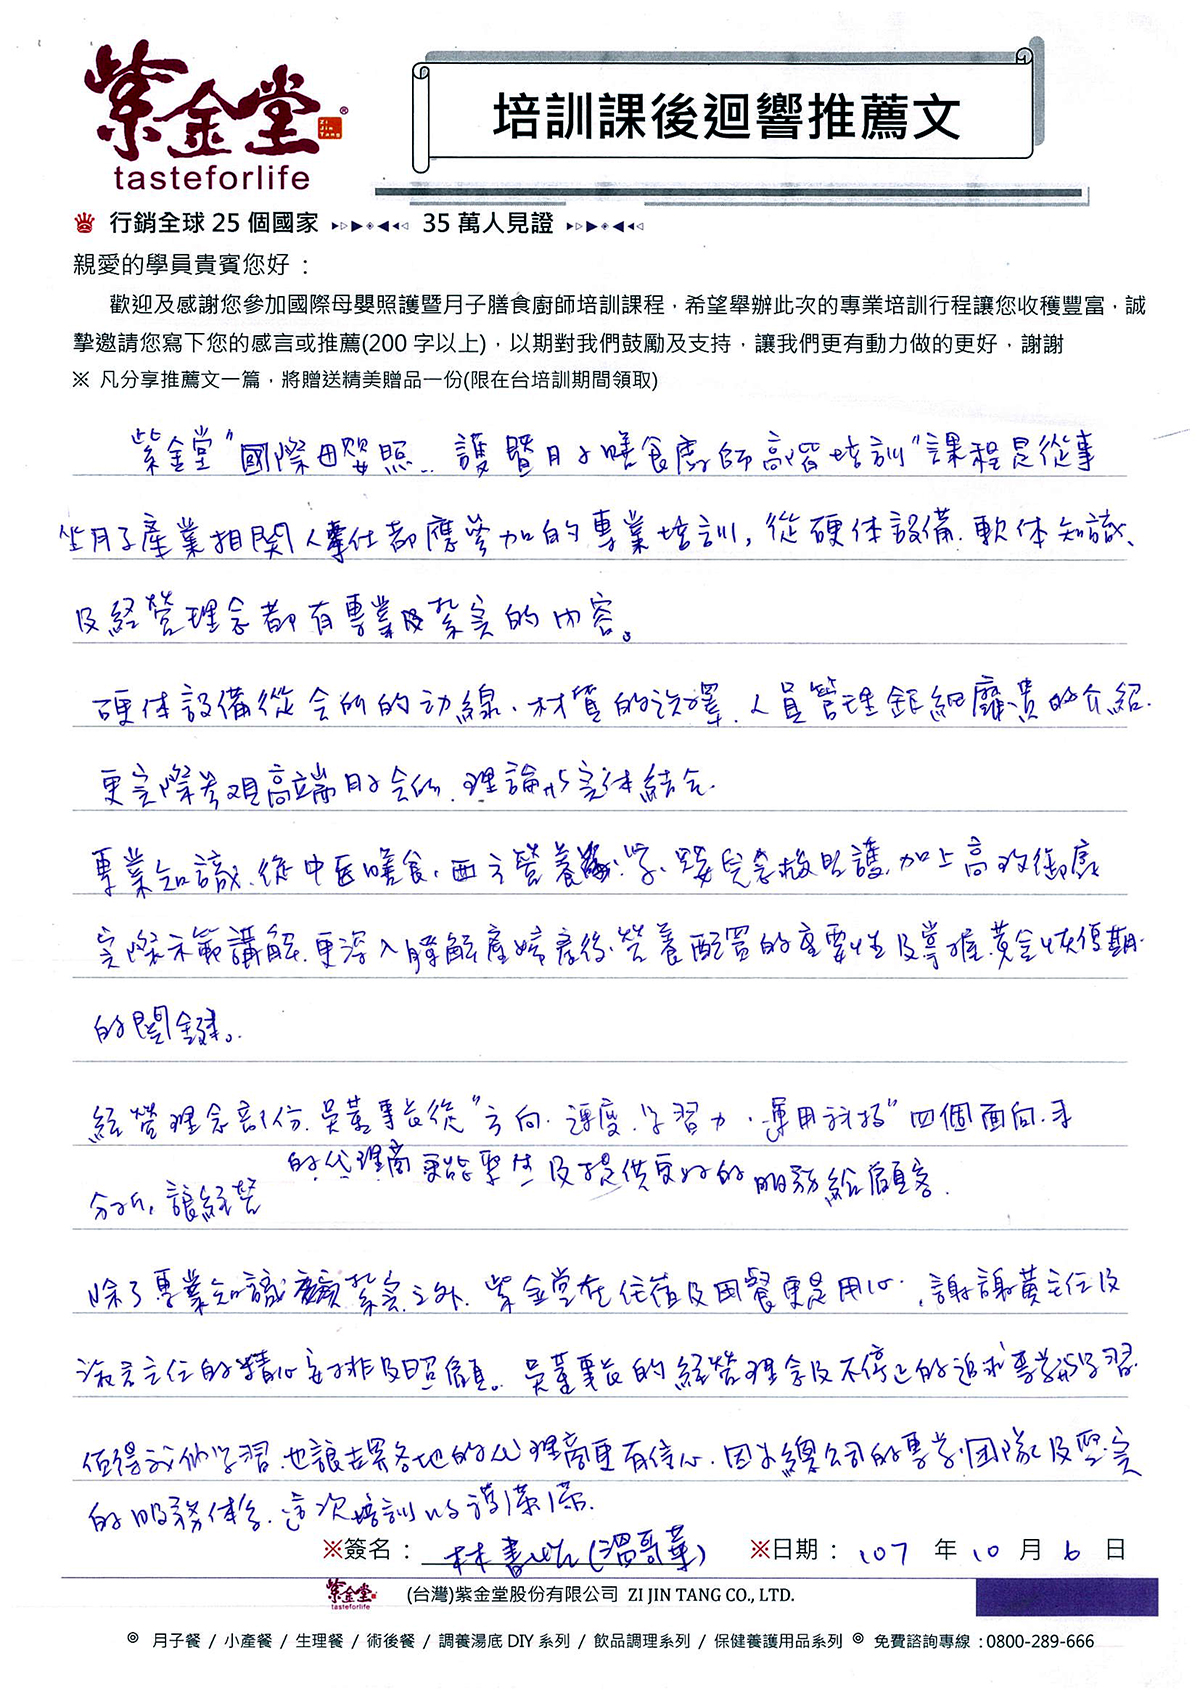 紫金堂®
Zi Jin Tang
tasteforlife
培訓課後迴響推薦文
行銷全球 25 個國家 35 萬人見證
親愛的學員貴賓您好：
歡迎及感謝您參加國際母嬰照護暨月子膳食廚師培訓課程，希望舉辦此次的專業培訓行程讓您收穫豐富，誠
摯邀請您寫下您的感言或推薦(200 字以上)，以期對我們鼓勵及支持，讓我們更有動力做的更好，謝謝
※ 凡分享推薦文一篇，將贈送精美贈品一份(限在台培訓期間領取)
紫金堂"國際母嬰照護暨月子膳食廚師高階培訓"課程是從事
坐月子產業相關人仕都應參加的專業培訓, 從硬体設備、軟体知識、
及經營理念都有專業及紮实的內容。
硬体設備從会所的动線、材質的選擇、人員管理鉅細靡遺的介紹.
更实際参观高端月子会所、理論与实体結合.
專業知識、從中医膳食、西方營養学、嬰兒急救照護,加上高效御廚
实際示範講解、更深入瞭解產婦產後營養配置的重要性及掌握黃金恢復期
的関鍵。
經營理念部份,吳董事長從"方向、速度、学習力、運用科技"四個面向来
分析, 讓經營
的代理商更能聚焦及提供更好的服務給顧客.
除了專業知識紮实之外、紫金堂在住宿及用餐更是用心、謝謝黃主任及
主任的精心安排及照顧。吳董事長的經營理念及不停止的追求專業与学習
值得我们学習、也讓世界各地的代理商更有信心、因为總公司的專業团隊及堅实
的服務体系、這次培訓 收穫滿滿.
※簽名： 林書怡(溫哥華) ※日期：107 年 10 月 6 日
紫金堂 tasteforlife (台灣)紫金堂股份有限公司 ZI JIN TANG CO., LTD.
◎ 月子餐 / 小產餐 / 生理餐 / 術後餐 / 調養湯底 DIY 系列 / 飲品調理系列 / 保健養護用品系列 ◎ 免費諮詢專線：0800-289-666